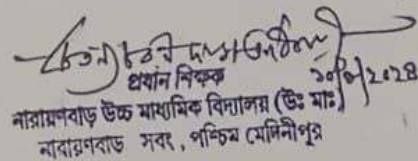 প্রধান শিক্ষক
নারায়ণবাড় উচ্চ মাধ্যমিক বিদ্যালয় (উঃ মাঃ)
নারায়ণবাড় সবং, পশ্চিম মেদিনীপুর